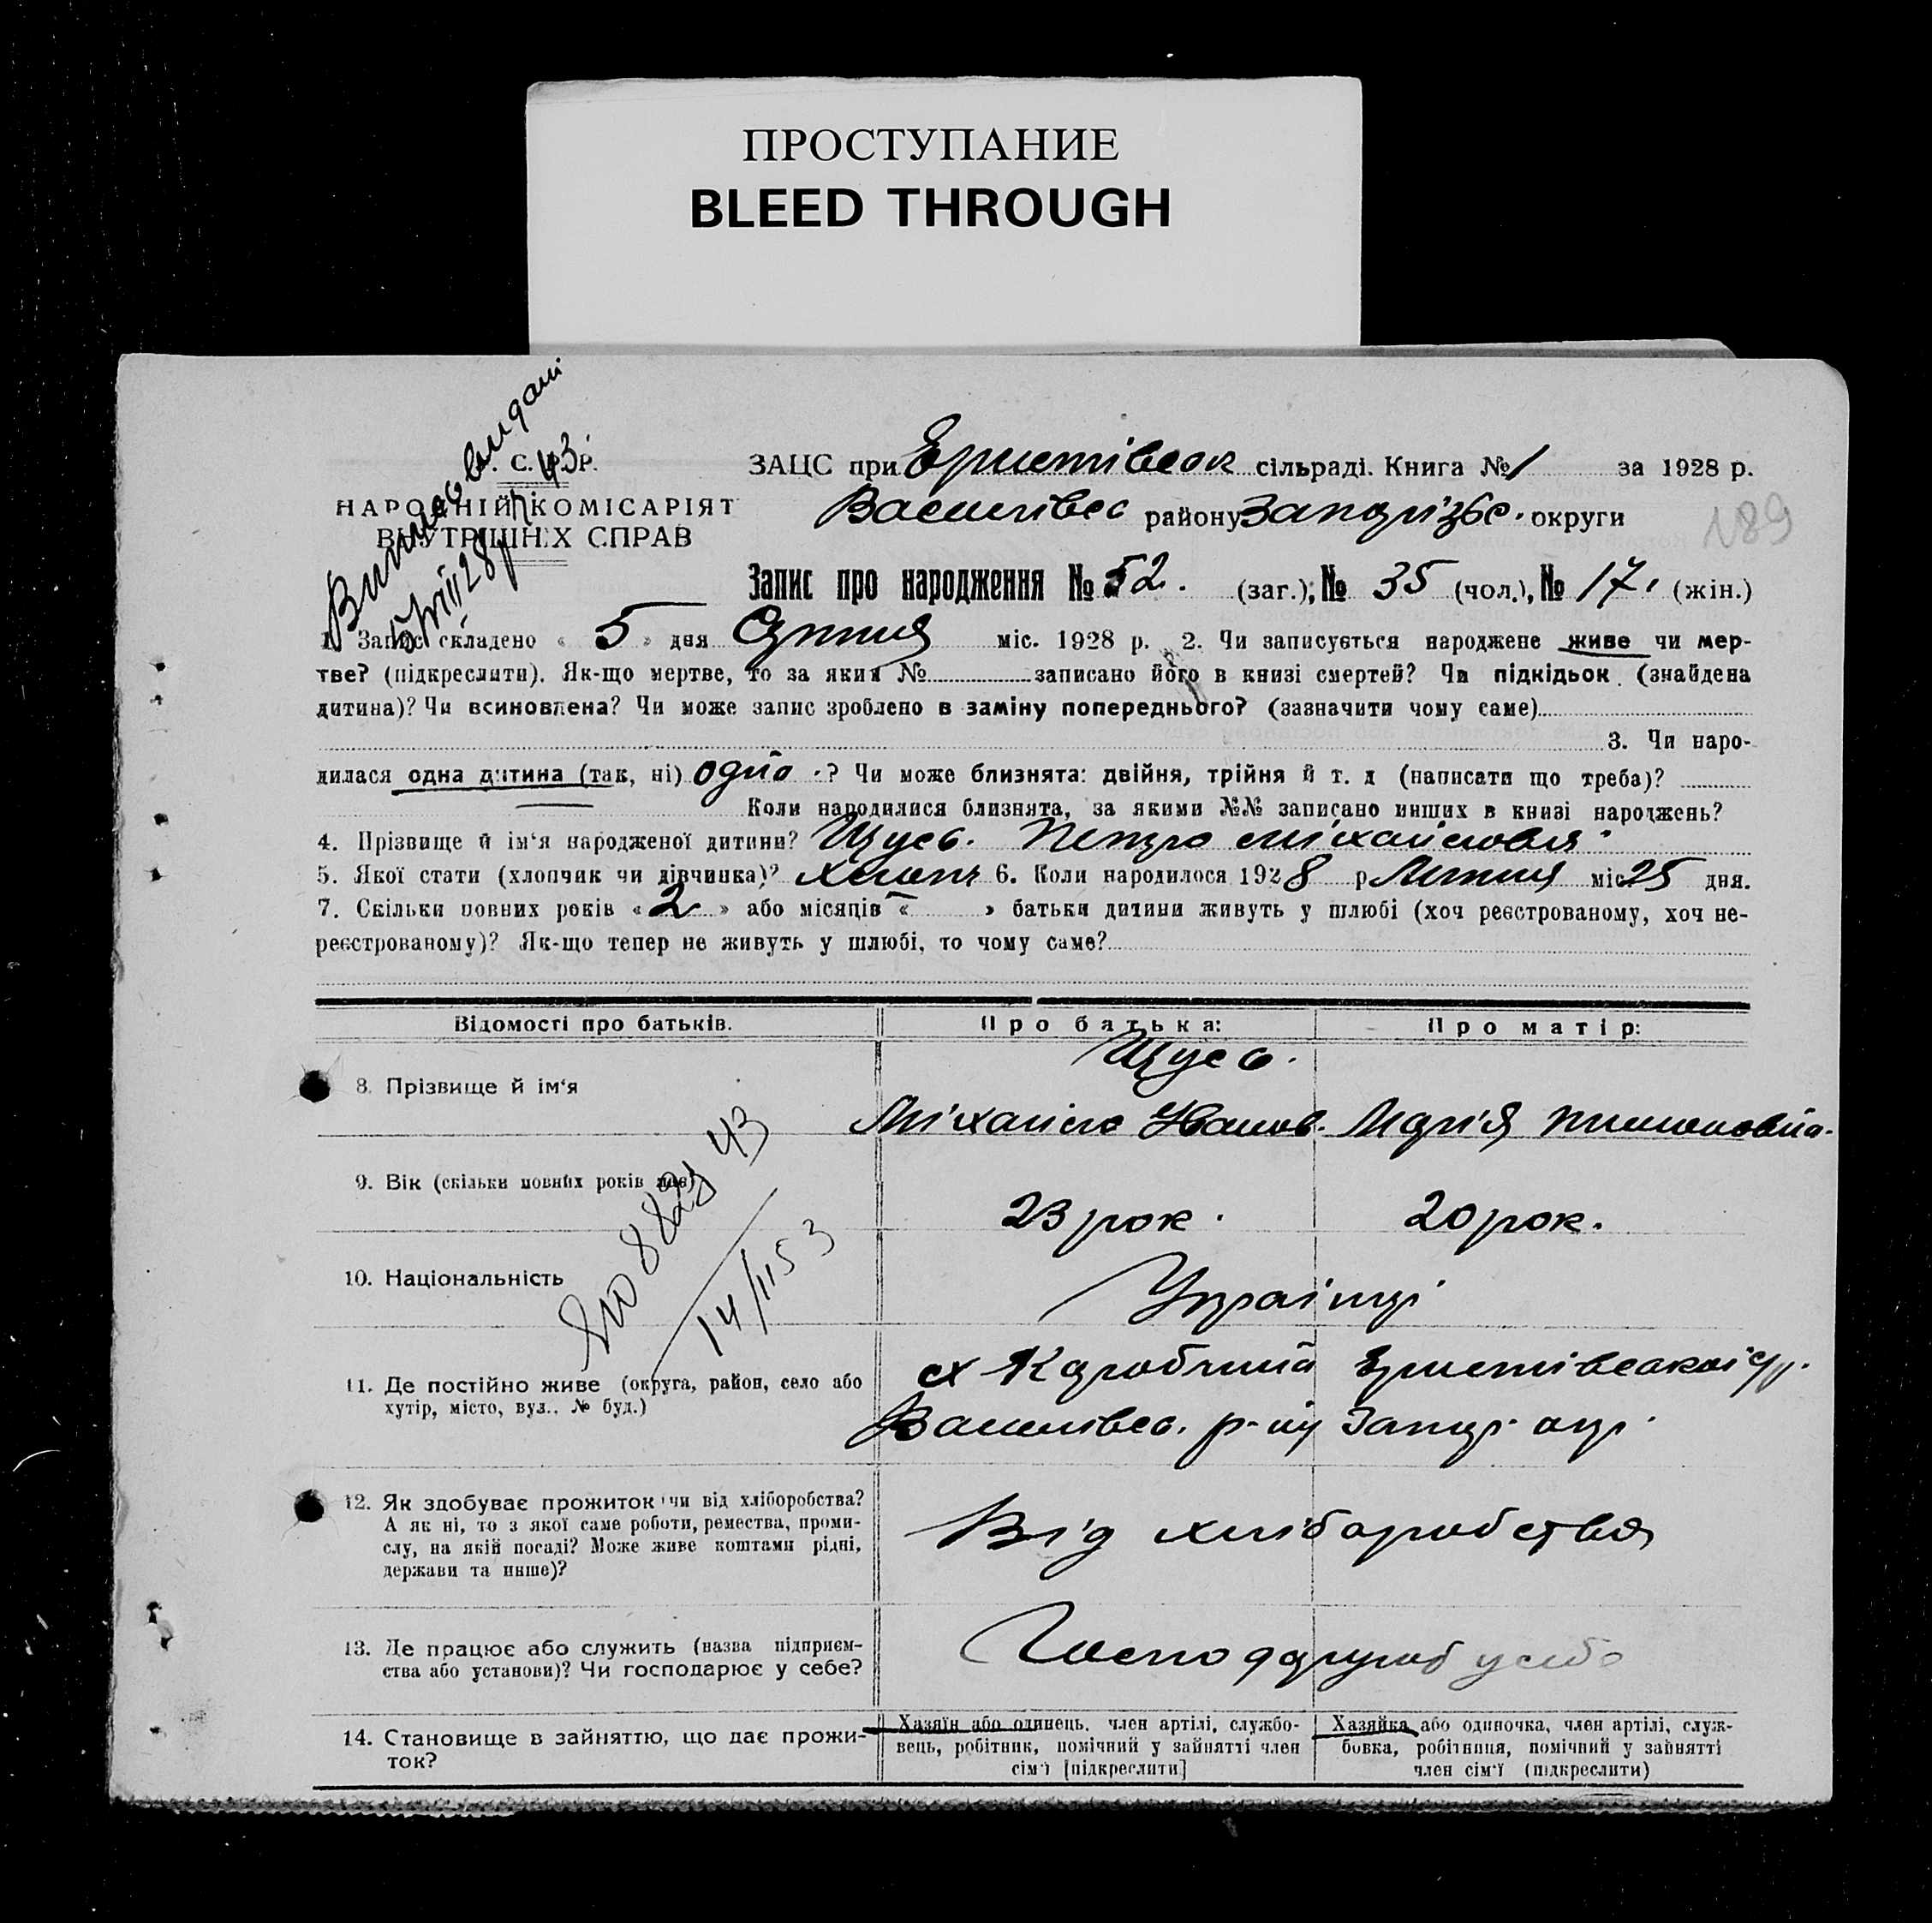 ПРОСТУПАНИЕ
BLEED THROUGH
С. Р. Р.
НАРОДНІЙ КОМІСАРІЯТ
ВНУТРІШНІХ СПРАВ
ЗАЦС при Ериstівськ сільраді. Книга № 1 за 1928 р.
Василівс району Запорізьс. округи
189
Запис про народження № 52. (заг.), № 35 (чол.), № 17. (жін.)
1. Запис складено « 5 » дня Сутня міс. 1928 р. 2. Чи записується народжене живе чи мер-
тве? (підкреслити). Як-що мертве, то за яким № записано його в книзі смертей? Чи підкідьок (знайдена
дитина)? Чи всиновлена? Чи може запис зроблено в заміну попереднього? (зазначити чому саме)
3. Чи наро-
дилася одна дитина (так, ні) одна ? Чи може близнята: двійня, трійня й т. д (написати що треба)?
Коли народилися близнята, за якими №№ записано инших в книзі народжень?
4. Прізвище й ім'я народженої дитини? Щусь. Петро Міхайлович
5. Якої стати (хлопчик чи дівчинка)? хлопч 6. Коли народилося 1928 р Липня міс 25 дня.
7. Скільки повних років « 2 » або місяців « » батьки дитини живуть у шлюбі (хоч реєстрованому, хоч не-
реєстрованому)? Як-що тепер не живуть у шлюбі, то чому саме?
Відомості про батьків. Про батька: Про матір:
Щусь.
8. Прізвище й ім'я
Міхайло Іванов. Марія
9. Вік (скільки повних років має)
23 рок. 20 рок.
10. Національність
Українці
14/II 53
11. Де постійно живе (округа, район, село або
хутір, місто, вул., № буд.)
Василівс. р-ну Запор. окр.
12. Як здобуває прожиток: чи від хліборобства?
А як ні, то з якої саме роботи, ремества, проми-
слу, на якій посаді? Може живе коштами рідні,
держави та инше)?
Від хліборобства
13. Де працює або служить (назва підприєм-
ства або установи)? Чи господарює у себе?
Господарують у себе
14. Становище в зайняттю, що дає прожи-
ток?
Хазяїн або одинець, член артілі, службо-
вець, робітник, помічний у зайнятті член
сім'ї [підкреслити]
Хазяйка або одиночка, член артілі, служ-
бовка, робітниця, помічний у зайнятті
член сім'ї (підкреслити)